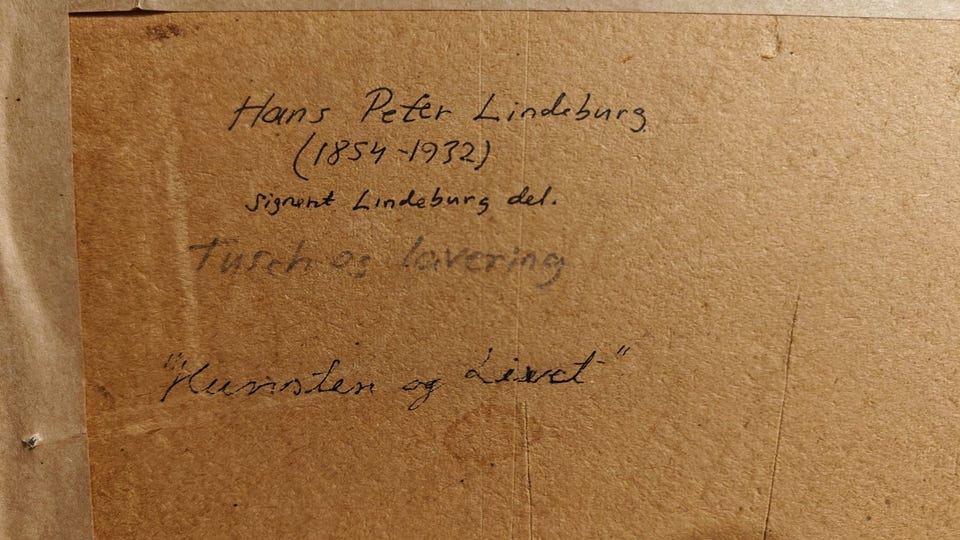 Hans Peter Lindeburg
(1854-1932)
signert Lindeburg del.
Tusch og lavering
"Kunsten og Livet"